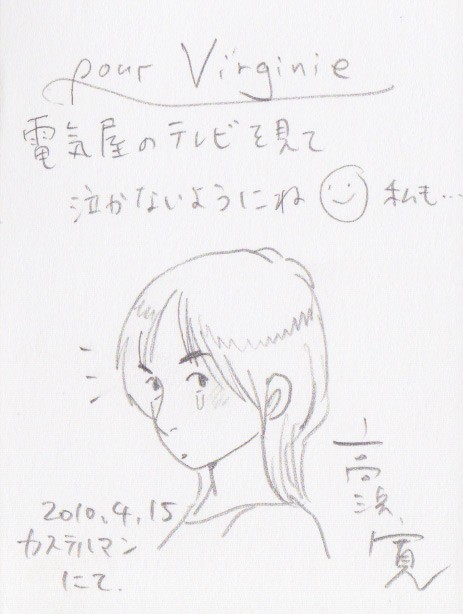 pour Virginie
電気屋のテレビを見て
泣かないようにね 私も…
高浜寛
2010.4.15
カステルマン
にて.